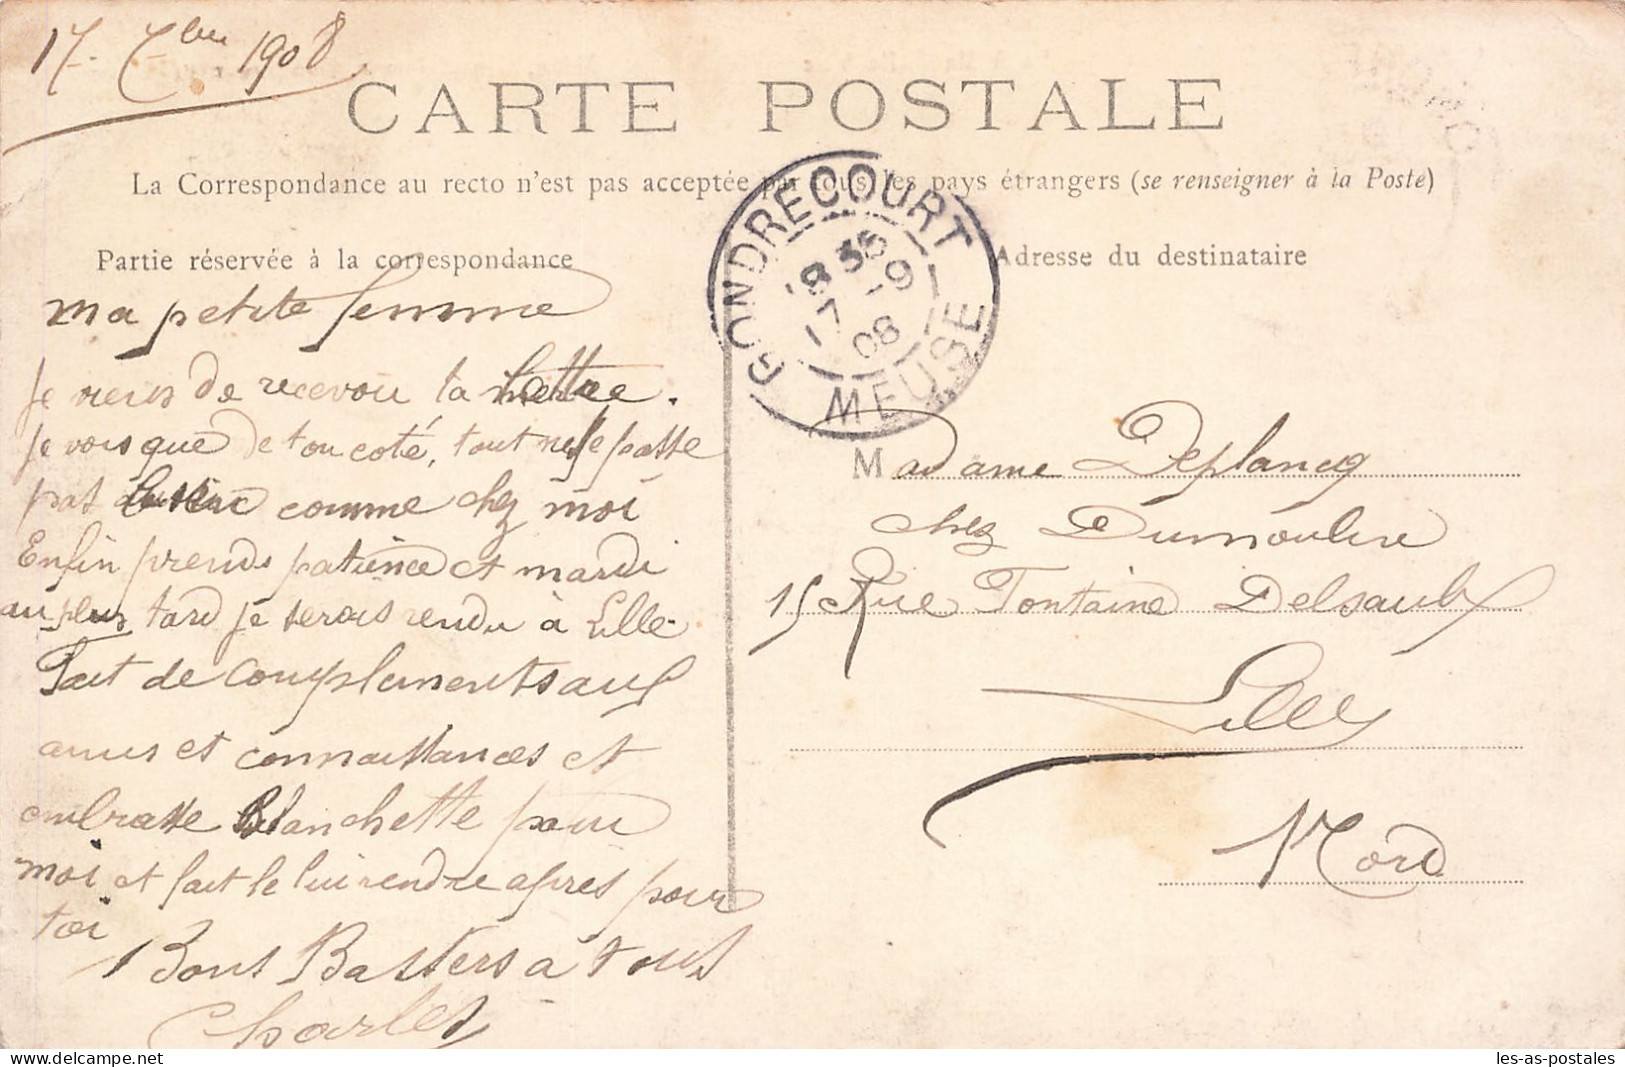 17 - 7bre 1908
CARTE POSTALE
La Correspondance au recto n'est pas acceptée par tous les pays étrangers (se renseigner à la Poste)
Partie réservée à la correspondance
ma petite femme
je viens de recevoir ta lettre.
je vois que de ton coté, tout ne se passe
pas comme chez moi
Enfin prends patience et mardi
au plus tard je serais rendu à Lille
Fait de Complements aux
amis et connaissances et
embrasse Blanchette pour
moi et fait le lui rendre apres pour
toi
Bons Baisers a tous
Charles
GONDRECOURT
18 35
17 - 9
08
MEUSE
Adresse du destinataire
Madame Deplancq
chez Dumoulin
15 Rue Fontaine Delsaulx
Lille
Nord
les-as-postales